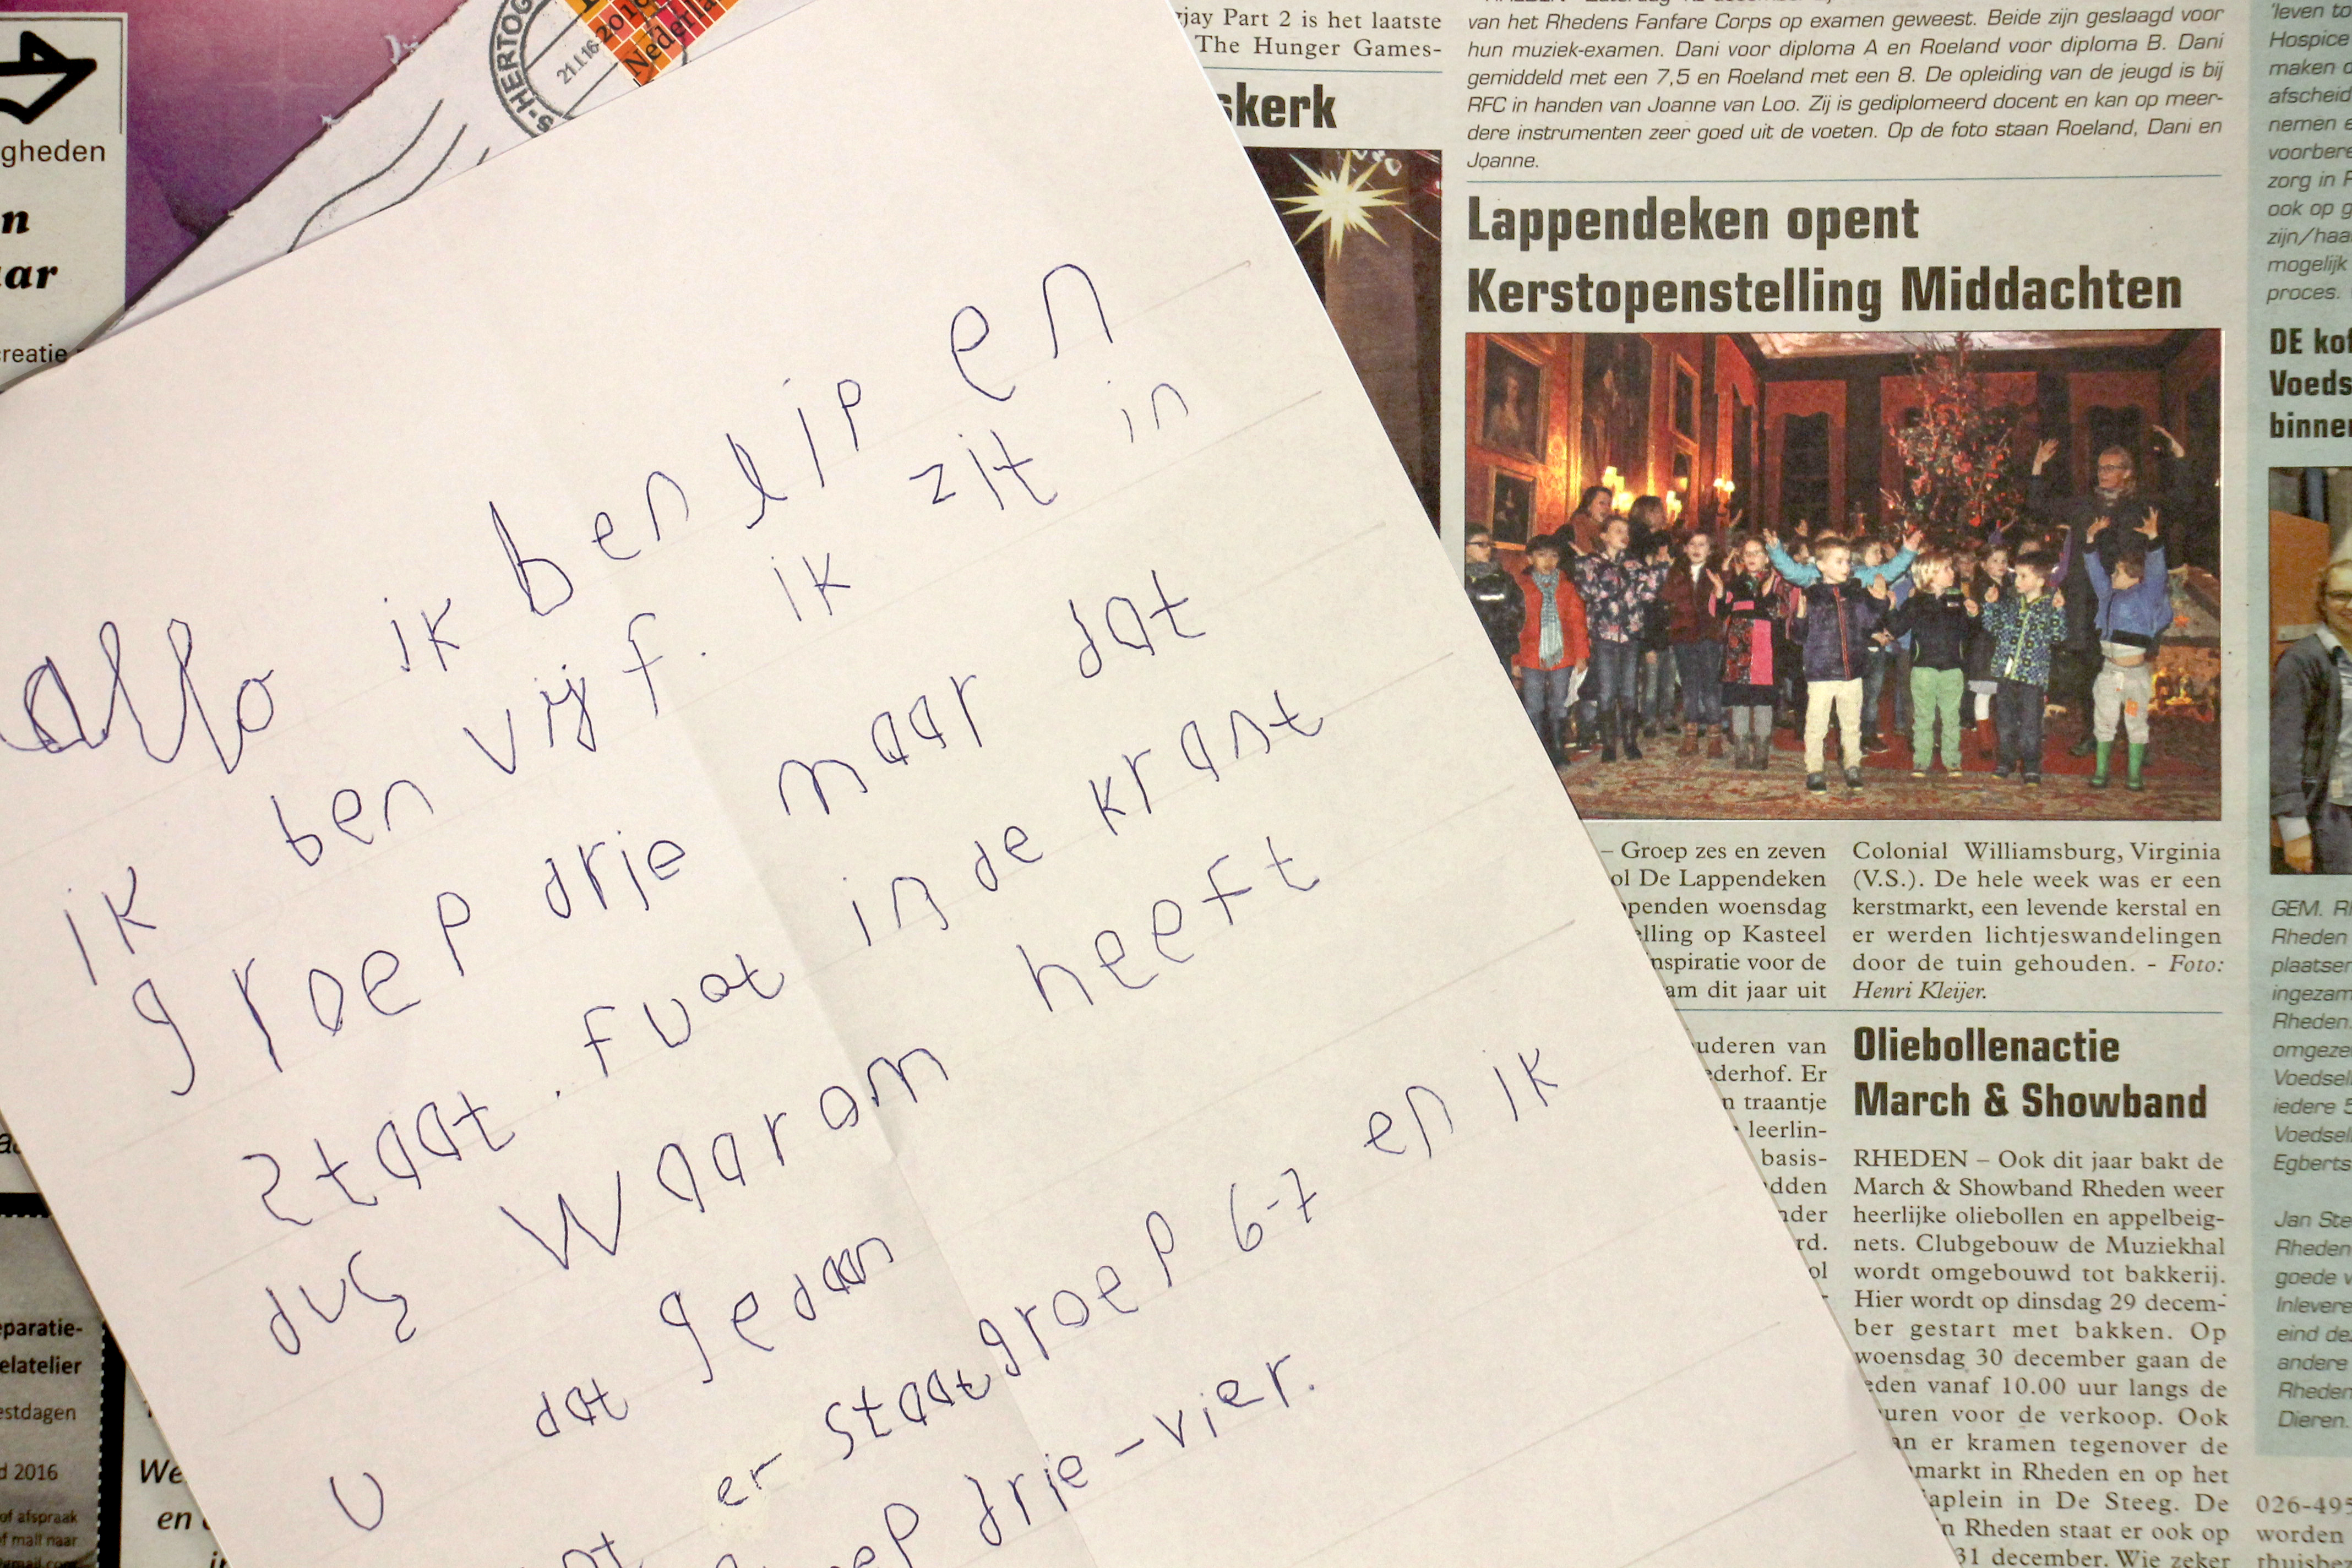 allo ik ben lip en
ik ben vijf. ik zit in
groep drie maar dat
staat . fuat in de krant
dus waarom heeft
u dat gedaan
er staat groep 6-7 en ik
drie-vier.
S-HERTOG
21.1.16
2016
Nederla
gheden
n
aar
creatie
paratie-
elatelier
estdagen
d 2016
of afspraak
of mail naar
gmail.com
We
en
jay Part 2 is het laatste
The Hunger Games-
skerk
van het Rhedens Fanfare Corps op examen geweest. Beide zijn geslaagd voor
hun muziek-examen. Dani voor diploma A en Roeland voor diploma B. Dani
gemiddeld met een 7,5 en Roeland met een 8. De opleiding van de jeugd is bij
RFC in handen van Joanne van Loo. Zij is gediplomeerd docent en kan op meer-
dere instrumenten zeer goed uit de voeten. Op de foto staan Roeland, Dani en
Joanne.
Lappendeken opent
Kerstopenstelling Middachten
– Groep zes en zeven
ol De Lappendeken
penden woensdag
elling op Kasteel
nspiratie voor de
am dit jaar uit
Colonial Williamsburg, Virginia
(V.S.). De hele week was er een
kerstmarkt, een levende kerstal en
er werden lichtjeswandelingen
door de tuin gehouden. - Foto:
Henri Kleijer.
uderen van
ederhof. Er
n traantje
leerlin-
basis-
dden
nder
rd.
ol
Oliebollenactie
March & Showband
RHEDEN – Ook dit jaar bakt de
March & Showband Rheden weer
heerlijke oliebollen en appelbeig-
nets. Clubgebouw de Muziekhal
wordt omgebouwd tot bakkerij.
Hier wordt op dinsdag 29 decem-
ber gestart met bakken. Op
woensdag 30 december gaan de
eden vanaf 10.00 uur langs de
uren voor de verkoop. Ook
an er kramen tegenover de
markt in Rheden en op het
aplein in De Steeg. De
n Rheden staat er ook op
31 december. Wie zeker
'leven to
Hospice
maken d
afscheid
nemen e
voorbere
zorg in F
ook op g
zijn/haa
mogelijk
proces.
DE kof
Voeds
binner
GEM. R
Rheden
plaatser
ingezam
Rheden.
omgeze
Voedsel
iedere 5
Voedsel
Egberts
Jan Ste
Rheden
goede v
Inlevere
eind de
andere
Rheden
Dieren.
026-495
worden
thuisbe